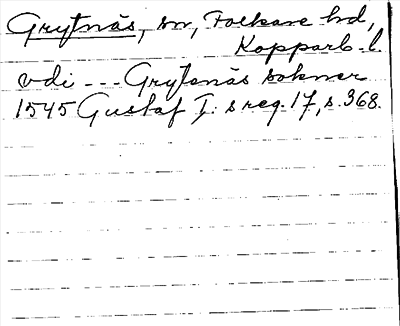 Grytnäs, sn, Folkare hd,
Kopparb. l.
vdi --- Grytenäs sokner
1545 Gustaf I: s reg. 17, s. 368.